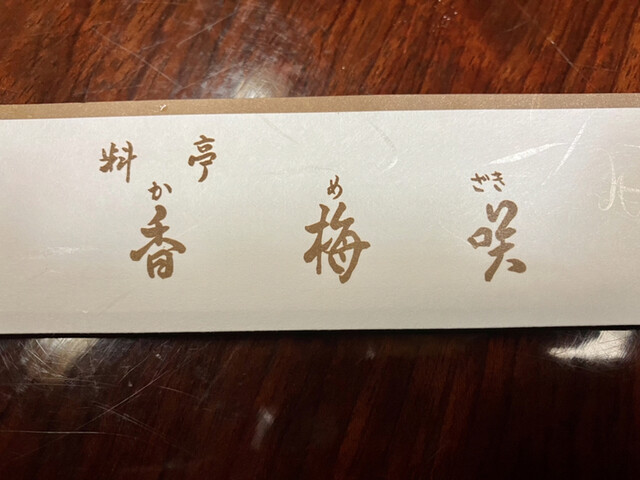 料亭
か め ざき
香 梅 咲